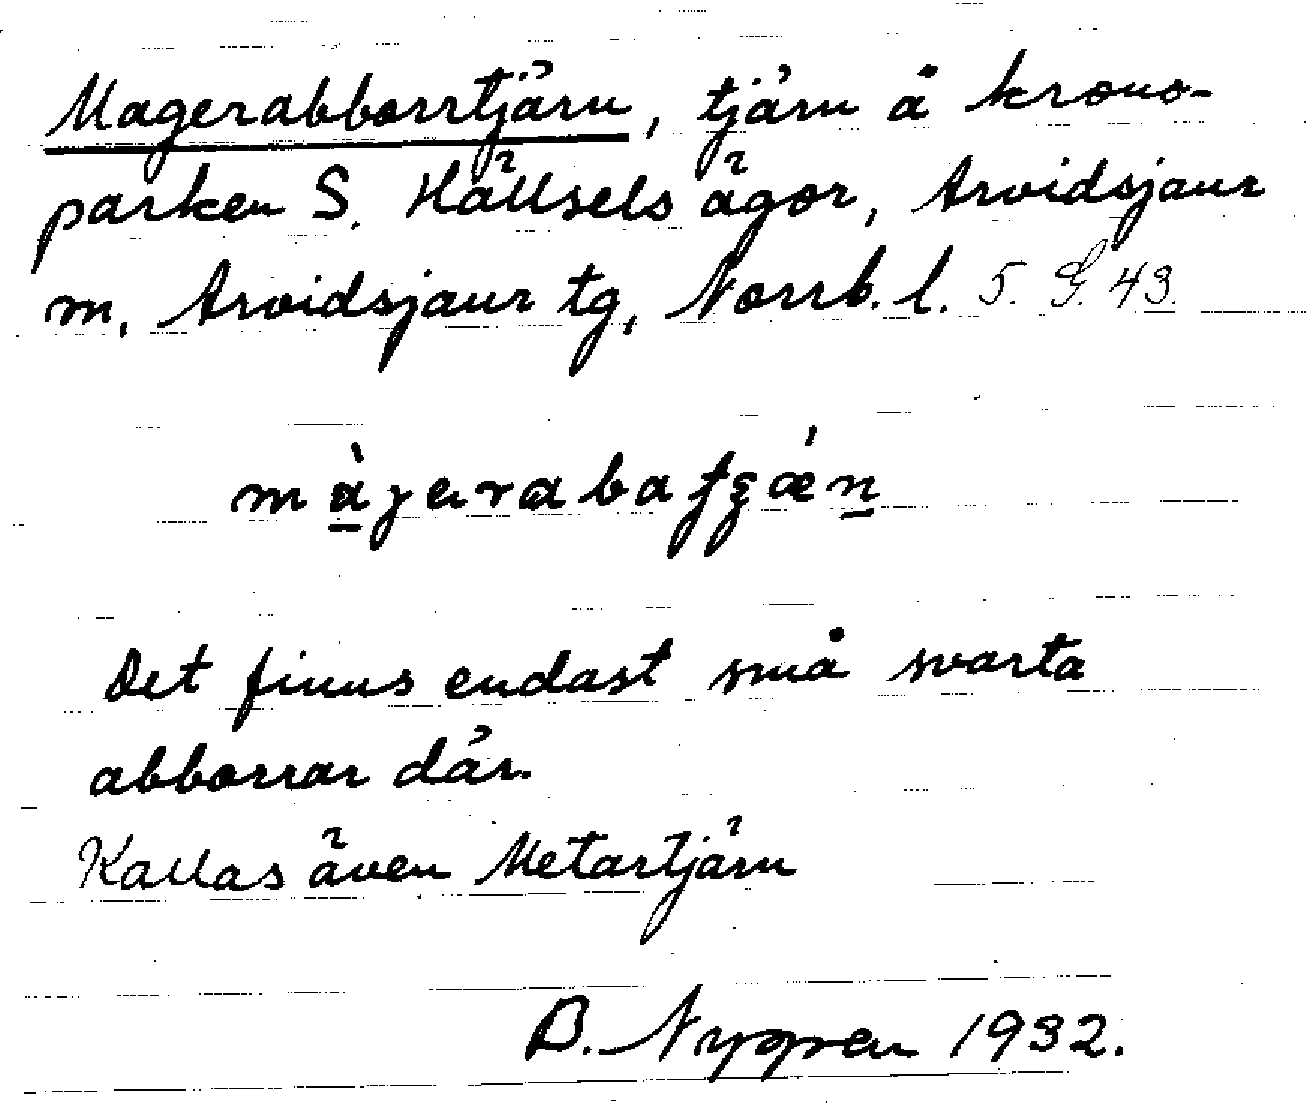 Magerabborrtjärn, tjärn å krono-
parken S. Hällsels ägor, Arvidsjaur
m, Arvidsjaur tg, Norrb. l. 5. G. 43.
Det finns endast små svarta
abborrar där.
Kallas även Metartjärn
B. Nygren 1932.